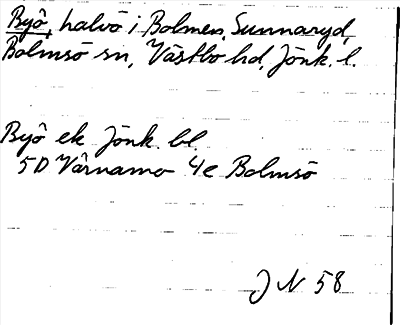 Byö, halvö i Bolmen, Sunnaryd,
Bolmsö sn, Västbo hd, Jönk. l.
Byö ek Jönk. bl.
5D Värnamo 4e Bolmsö
J N 58